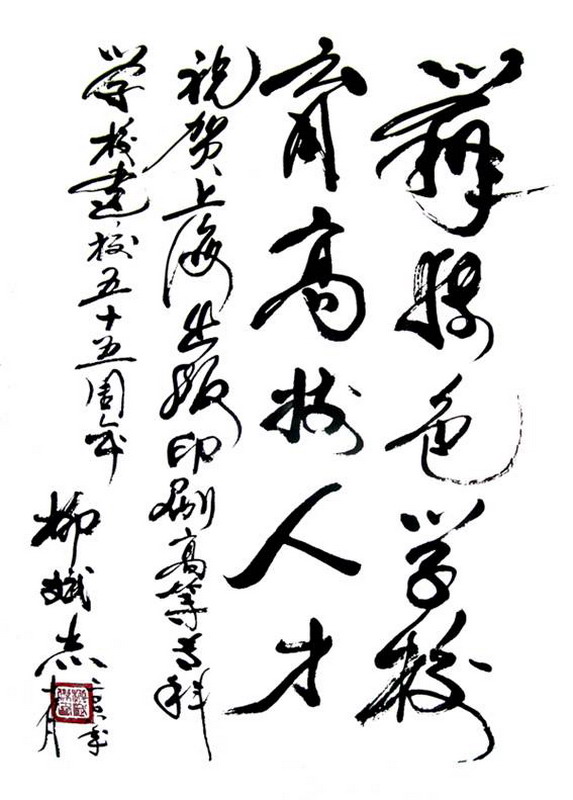 辦特色学校
育高技人才
祝贺上海出版印刷高等专科
学校建校五十五周年
柳斌杰